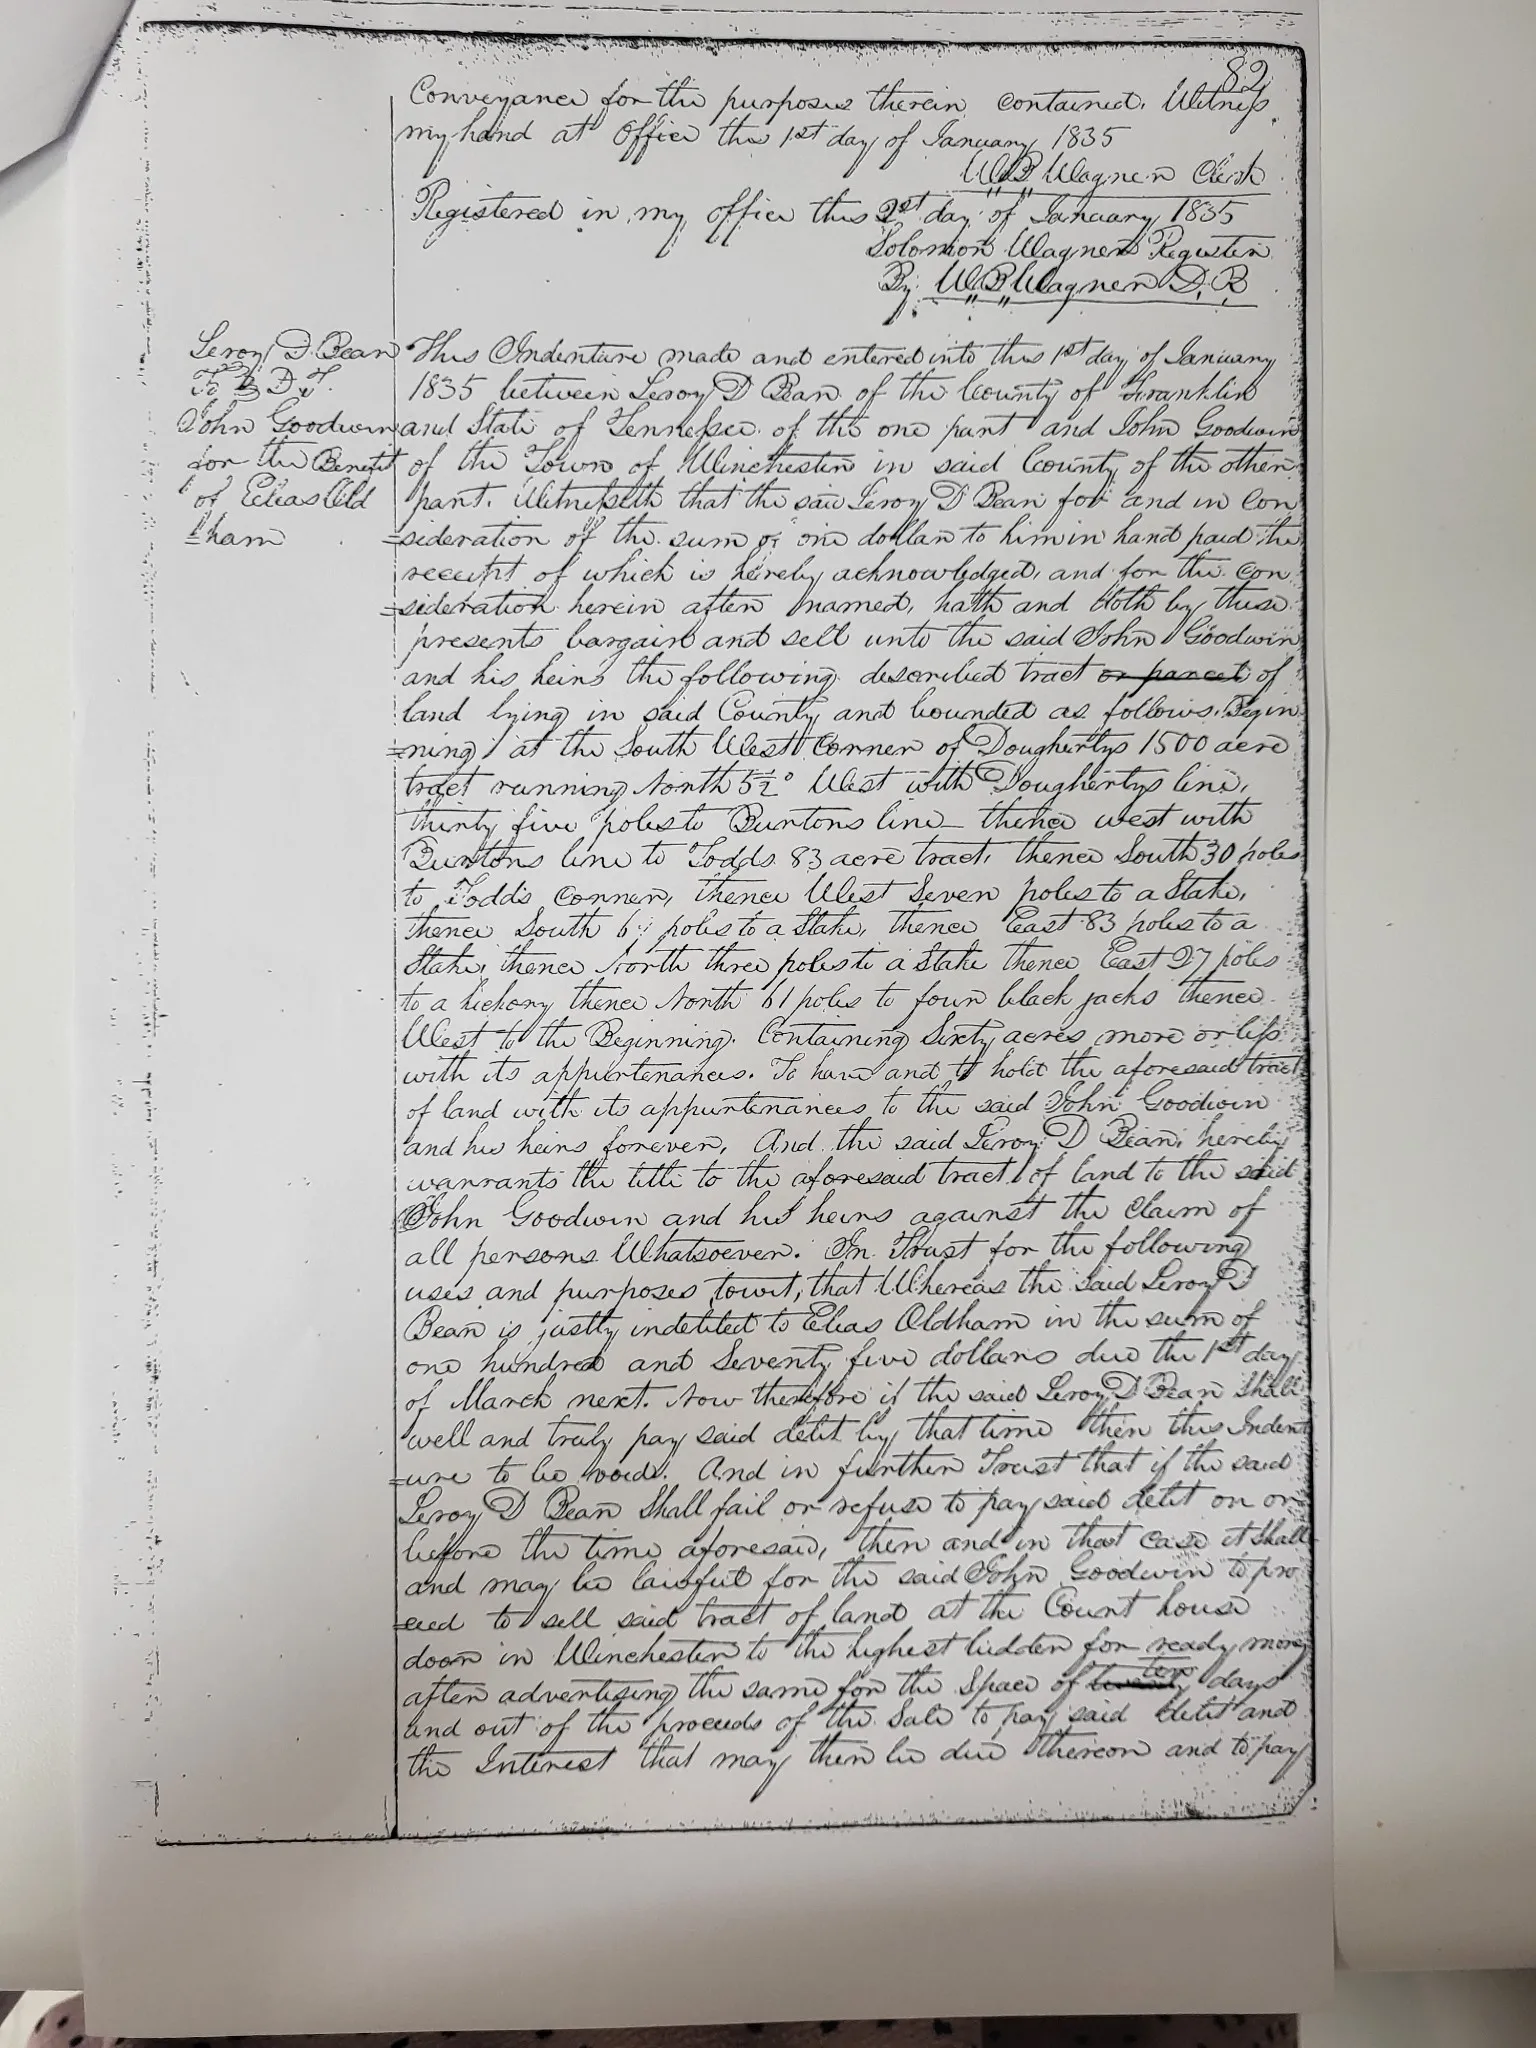 82
Conveyance for the purposes therein contained. Witness
my hand at office this 1st day of January 1835
W B Wagner Clerk
Registered in my office this 2st day of January 1835
Solomon Wagner Register
By W B Wagner D. R
Leroy D. Bean
To D. T.
John Goodwin
for the Benefit
of Elias Old
=ham
This Indenture made and entered into this 1st day of January
1835 between Leroy D Bean of the County of Franklin
and State of Tennessee of the one part and John Goodwin
of the Town of Winchester in said County of the other
part. Witnesseth that the said Leroy D Bean for and in Con
=sideration of the sum of one dollar to him in hand paid the
receipt of which is hereby acknowledged, and for the con
=sideration herein after named, hath and doth by these
presents bargain and sell unto the said John Goodwin
and his heirs the following described tract or parcel of
land lying in said County and bounded as follows. Begin
=ning at the South West Corner of Doughertys 1500 acre
tract running North 5½° West with Doughertys line,
thirty five poles to Burtons line thence west with
Burtons line to Todds 83 acre tract, thence South 30 poles
to Todds corner, thence West Seven poles to a Stake,
thence South poles to a Stake, thence East 83 poles to a
Stake, thence North three poles to a Stake thence East 27 poles
to a hickory thence North 61 poles to four black jacks thence
West to the Beginning. Containing Sixty acres more or less
with its appurtenances. To have and to hold the aforesaid tract
of land with its appurtenances to the said John Goodwin
and his heirs forever. And the said Leroy D Bean, hereby
warrants the title to the aforesaid tract of land to the said
John Goodwin and his heirs against the claim of
all persons Whatsoever. In Trust for the following
uses and purposes, towit, that Whereas the said Leroy D
Bean is justly indebted to Elias Oldham in the sum of
one hundred and Seventy five dollars due the 1st day
of March next. Now therefore if the said Leroy D Bean Shall
well and truly pay said debt by that time then this Indent
=ure to be void. And in further Trust that if the said
Leroy D Bean Shall fail or refuse to pay said debt on or
before the time aforesaid, then and in that case it Shall
and may be lawful for the said John Goodwin to pro
=ceed to sell said tract of land at the Court house
door in Winchester to the highest bidder for ready money
after advertising the same for the Space of twenty ten days
and out of the proceeds of the Sale to pay said debt and
the Interest that may then be due thereon and to pay